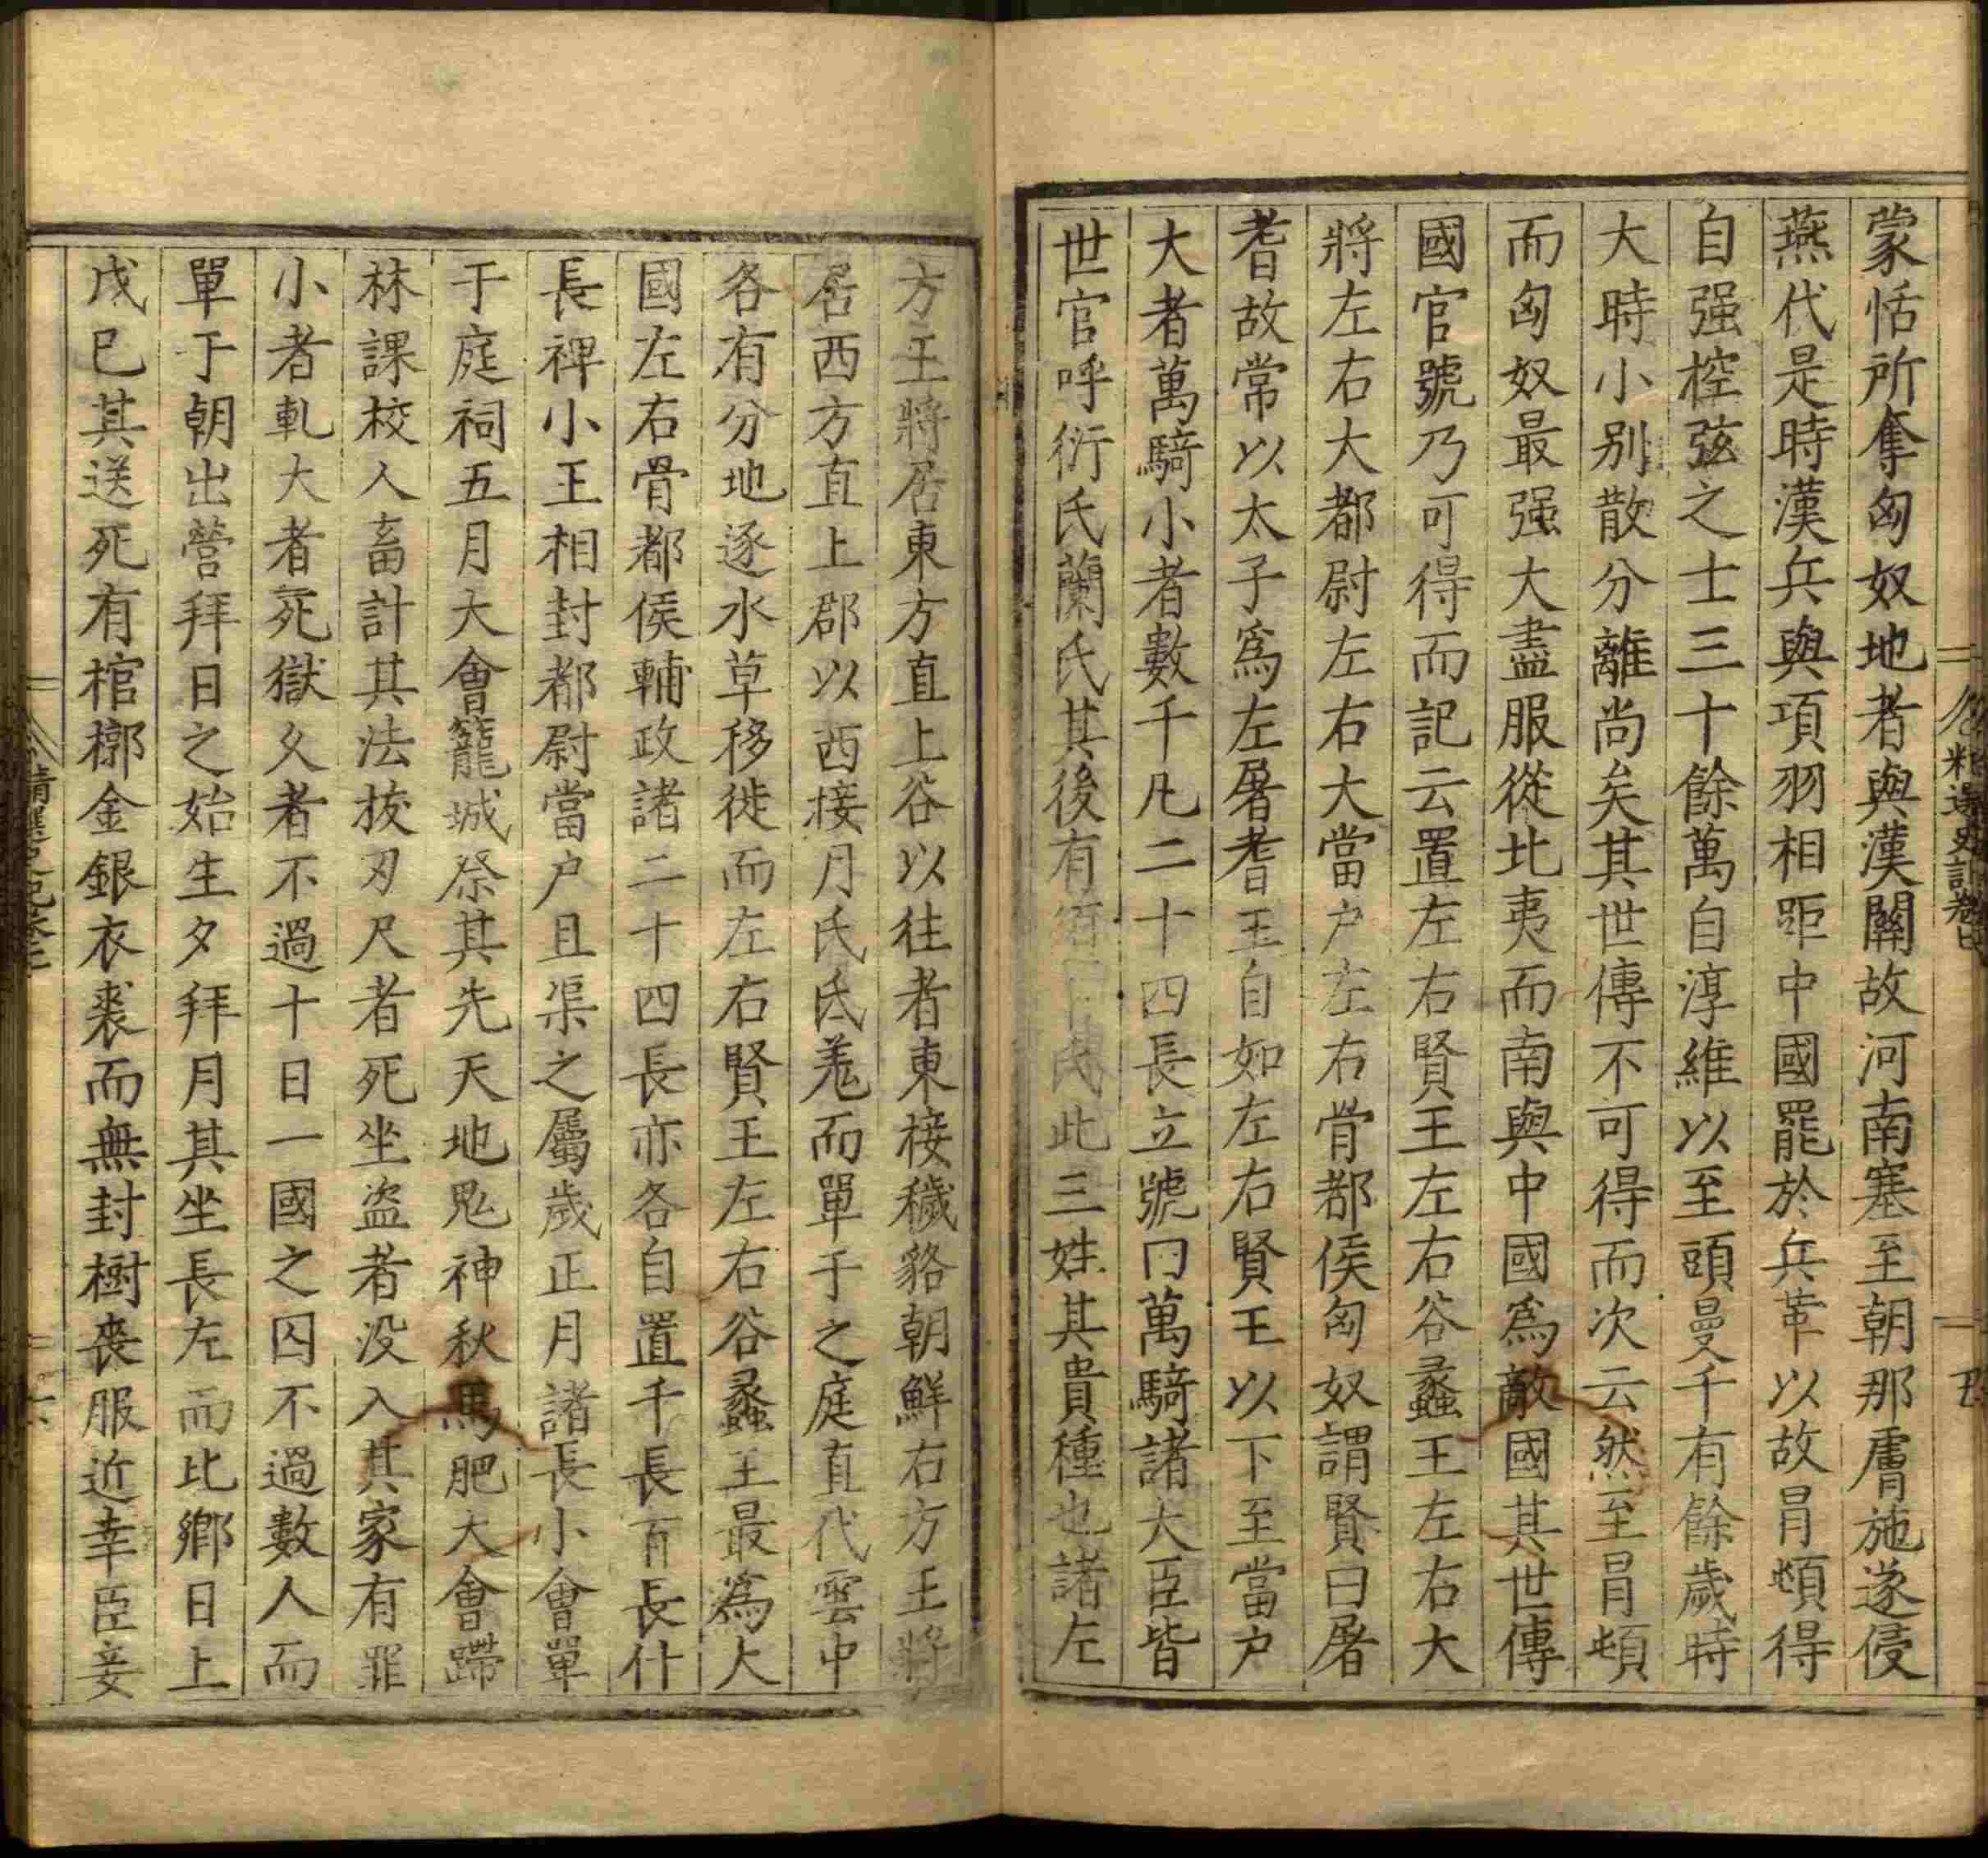 蒙恬所奪匈奴地者與漢關故河南塞至朝那膚施遂侵
燕代是時漢兵與項羽相距中國罷於兵革以故冒頓得
自强控弦之士三十餘萬自淳維以至頭曼千有餘歲時
大時小别散分離尚矣其世傳不可得而次云然至冒頓
而匈奴最强大盡服從北夷而南與中國爲敵國其世傳
國官號乃可得而記云置左右賢王左右谷蠡王左右大
將左右大都尉左右大當户左右骨都侯匈奴謂賢曰屠
耆故常以太子爲左屠耆王自如左右賢王以下至當户
大者萬騎小者數千凡二十四長立號曰萬騎諸大臣皆
世官呼衍氏蘭氏其後有氏此三姓其貴種也諸左
方王將居東方直上谷以往者東接穢貉朝鮮右方王將
居西方直上郡以西接月氏氐羗而單于之庭直代雲中
各有分地逐水草移徙而左右賢王左右谷蠡王最爲大
國左右骨都侯輔政諸二十四長亦各自置千長百長什
長裨小王相封都尉當户且渠之屬歲正月諸長小會單
于庭祠五月大會籠城祭其先天地鬼神秋馬肥大會蹛
林課校人畜計其法拔刃尺者死坐盗者没入其家有罪
小者軋大者死獄久者不過十日一國之囚不過數人而
單于朝出營拜日之始生夕拜月其坐長左而北鄉日上
戊巳其送死有棺槨金銀衣裘而無封樹喪服近幸臣妾